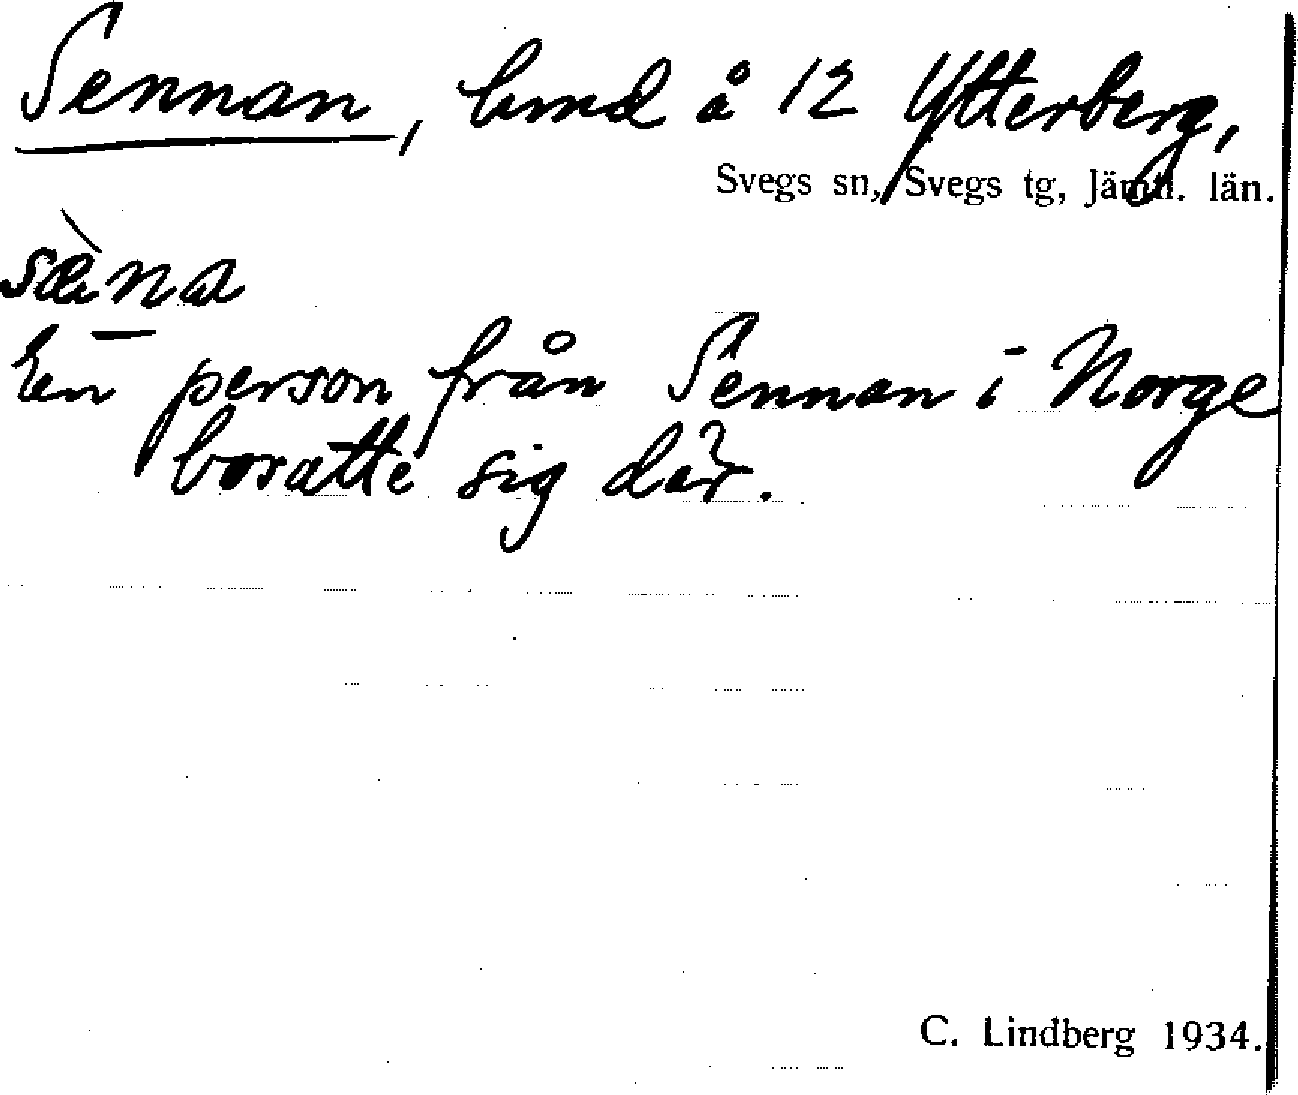 Sennan, lmd å 12 Ytterberg,
Svegs sn, Svegs tg, Jämtl. län.
sæ̀na
En person från Sennan i Norge
bosatte sig där.
C. Lindberg 1934.